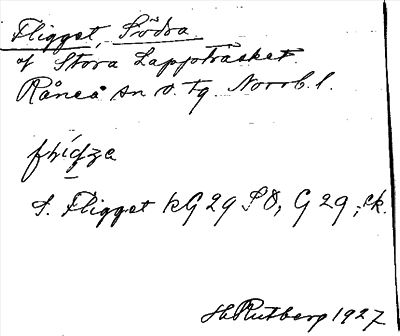 Fligget, Södra
af Stora Lappträsket.
Råneå sn o. tg. Norrb. l.
S. Fligget kG 29 SO, G 29, ek.
Hl Rutberg 1927